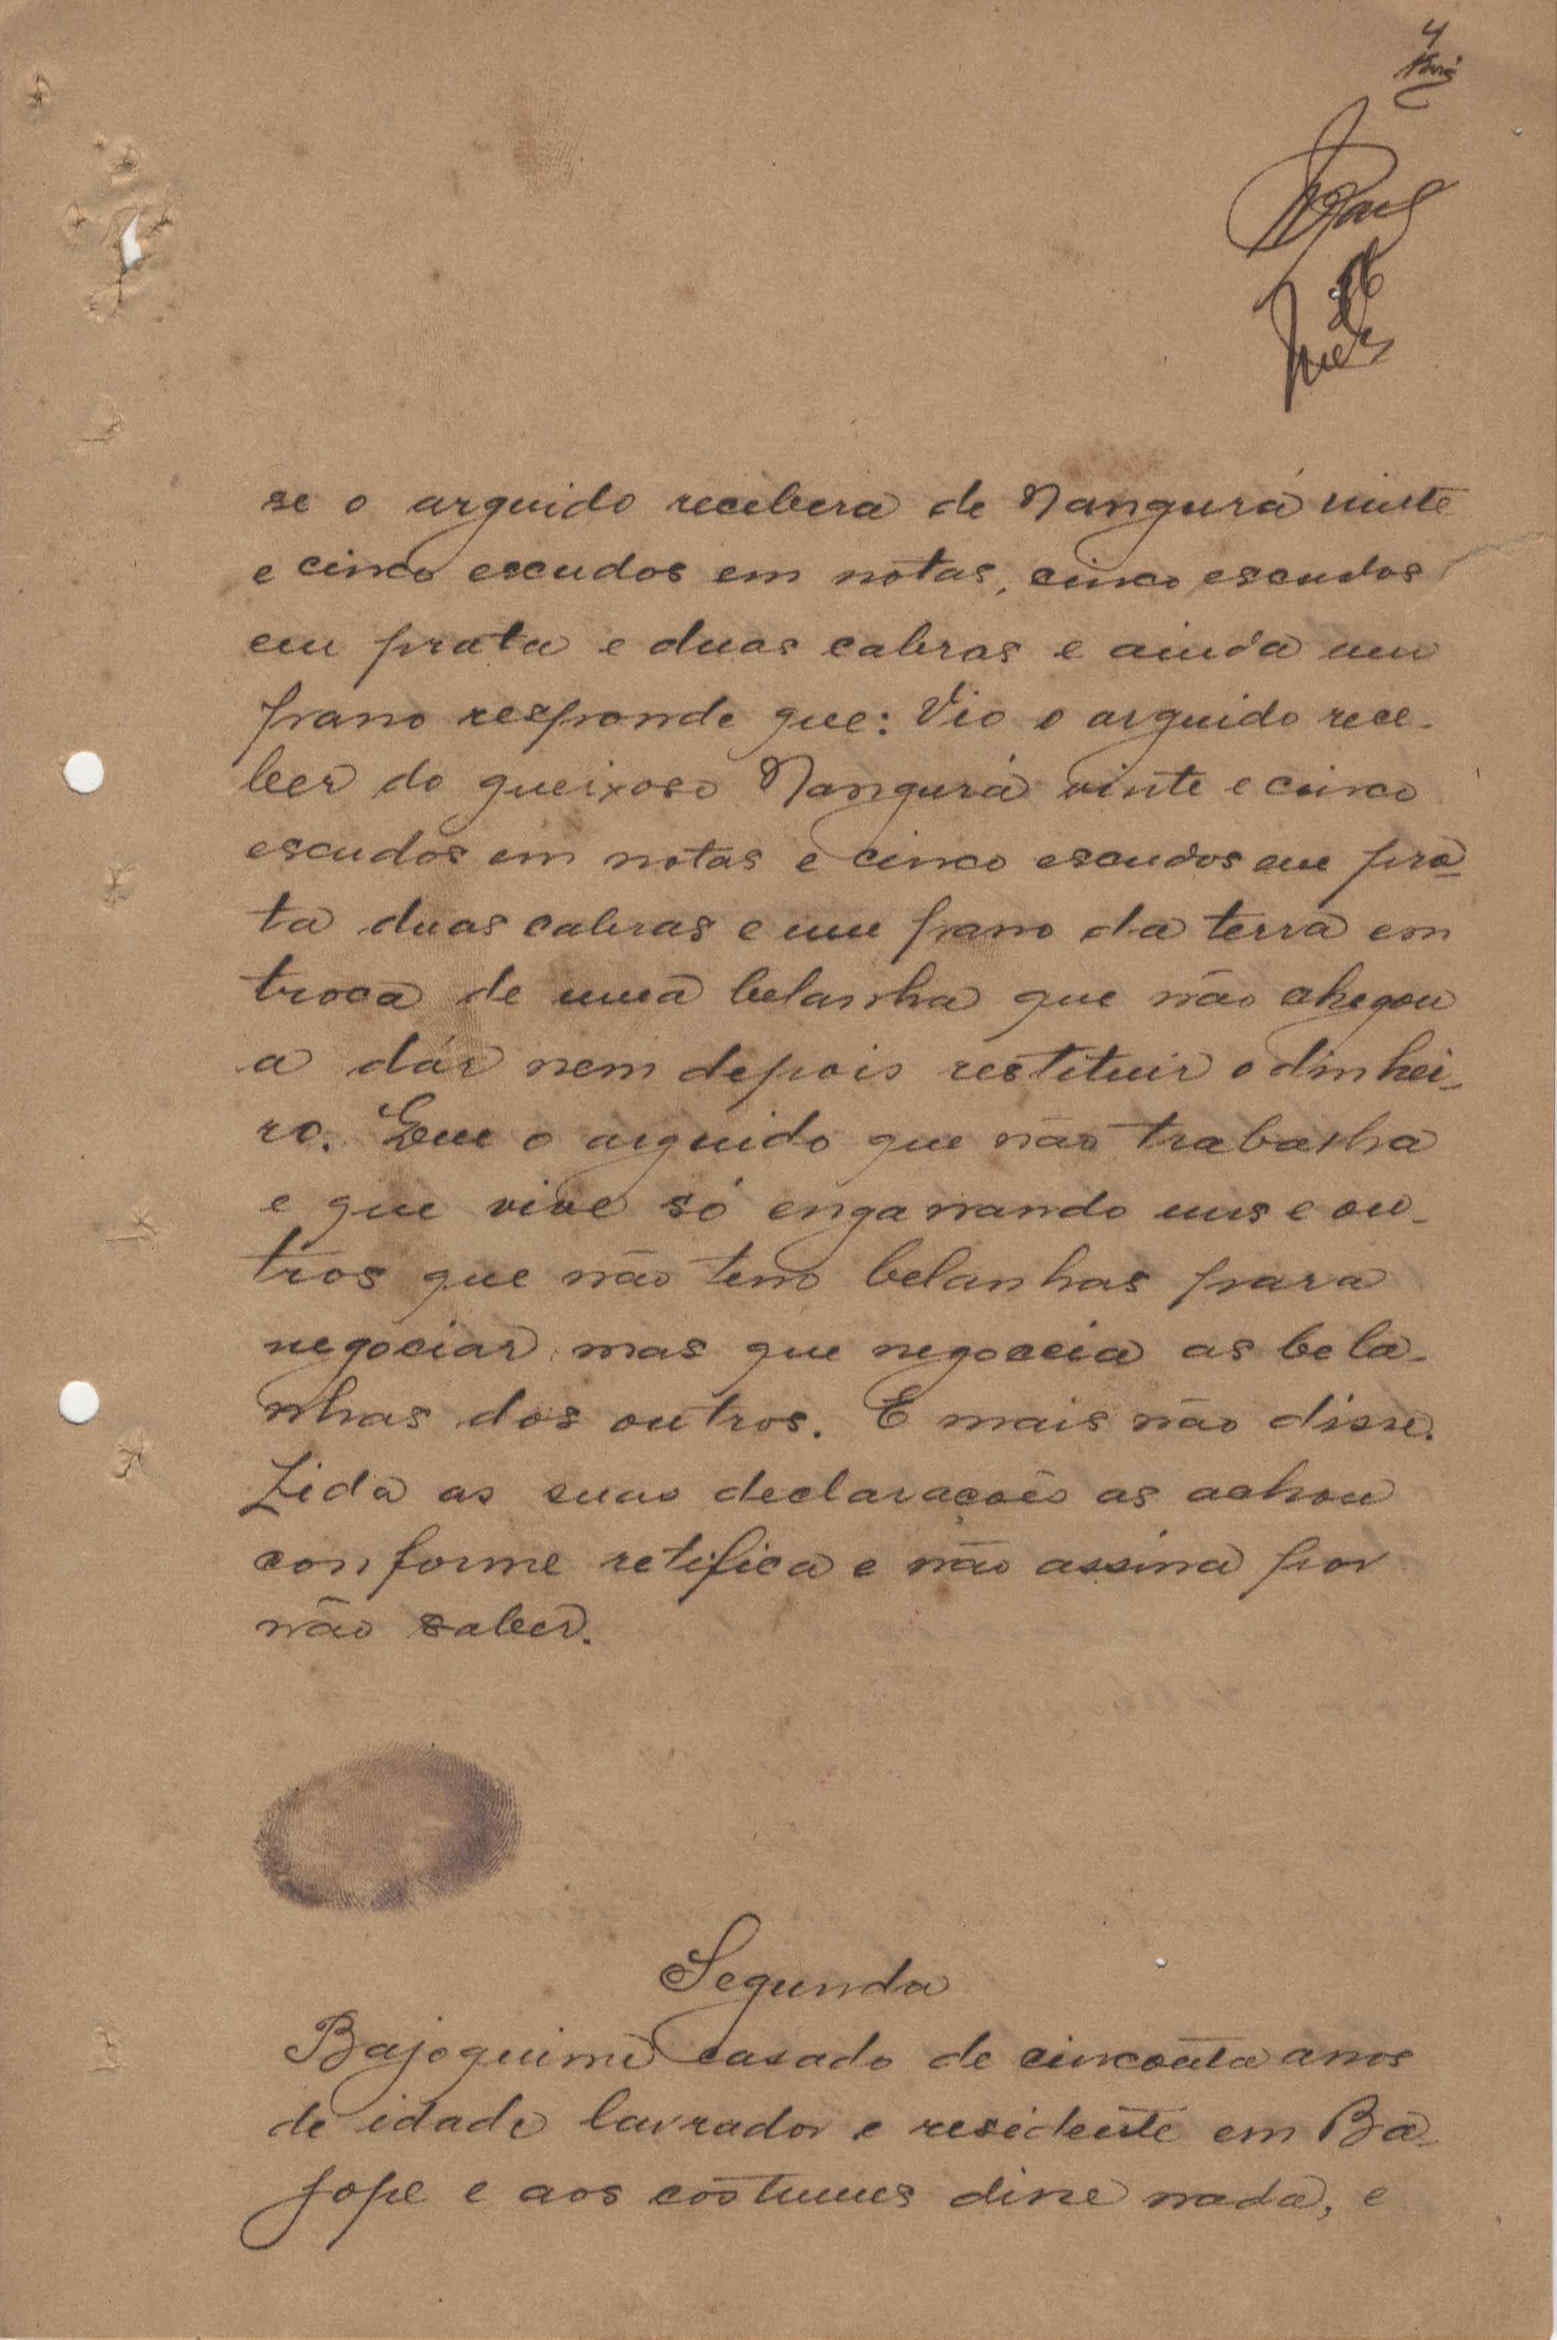 4
se o arguido recebera de Nangurá vinte
e cinco escudos em notas, cinco escudos
em prata e duas cabras e ainda um
pano responde que: Vio o arguido rece-
ber do queixoso Nangurá vinte e cinco
escudos em notas e cinco escudos em pra-
ta duas cabras e um pano da terra em
troca de uma belanha que não chegou
a dár nem depois restituir o dinhei-
ro. Que o arguido que não trabalha
e que vive só enganando uns e ou-
tros que não tem belanhas para
negociar, mas que negoceia as bela-
nhas dos outros. E mais não disse.
Lida as suas declarações as achou
conforme retifica e não assina por
não saber.
Segunda
Bajoquimé casado de cincoenta anos
de idade lavrador e residente em Ba-
jope e aos costumes disse nada, e